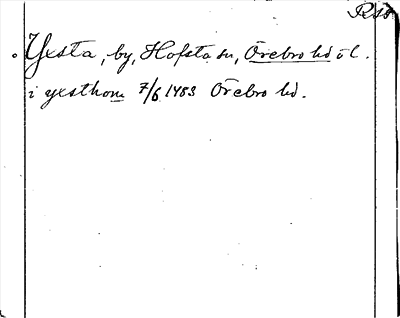 Rsö
Yxsta, by, Hofsta sn, Örebro hd o l.
i yxsthom 7/6 1483 Örebro hd.